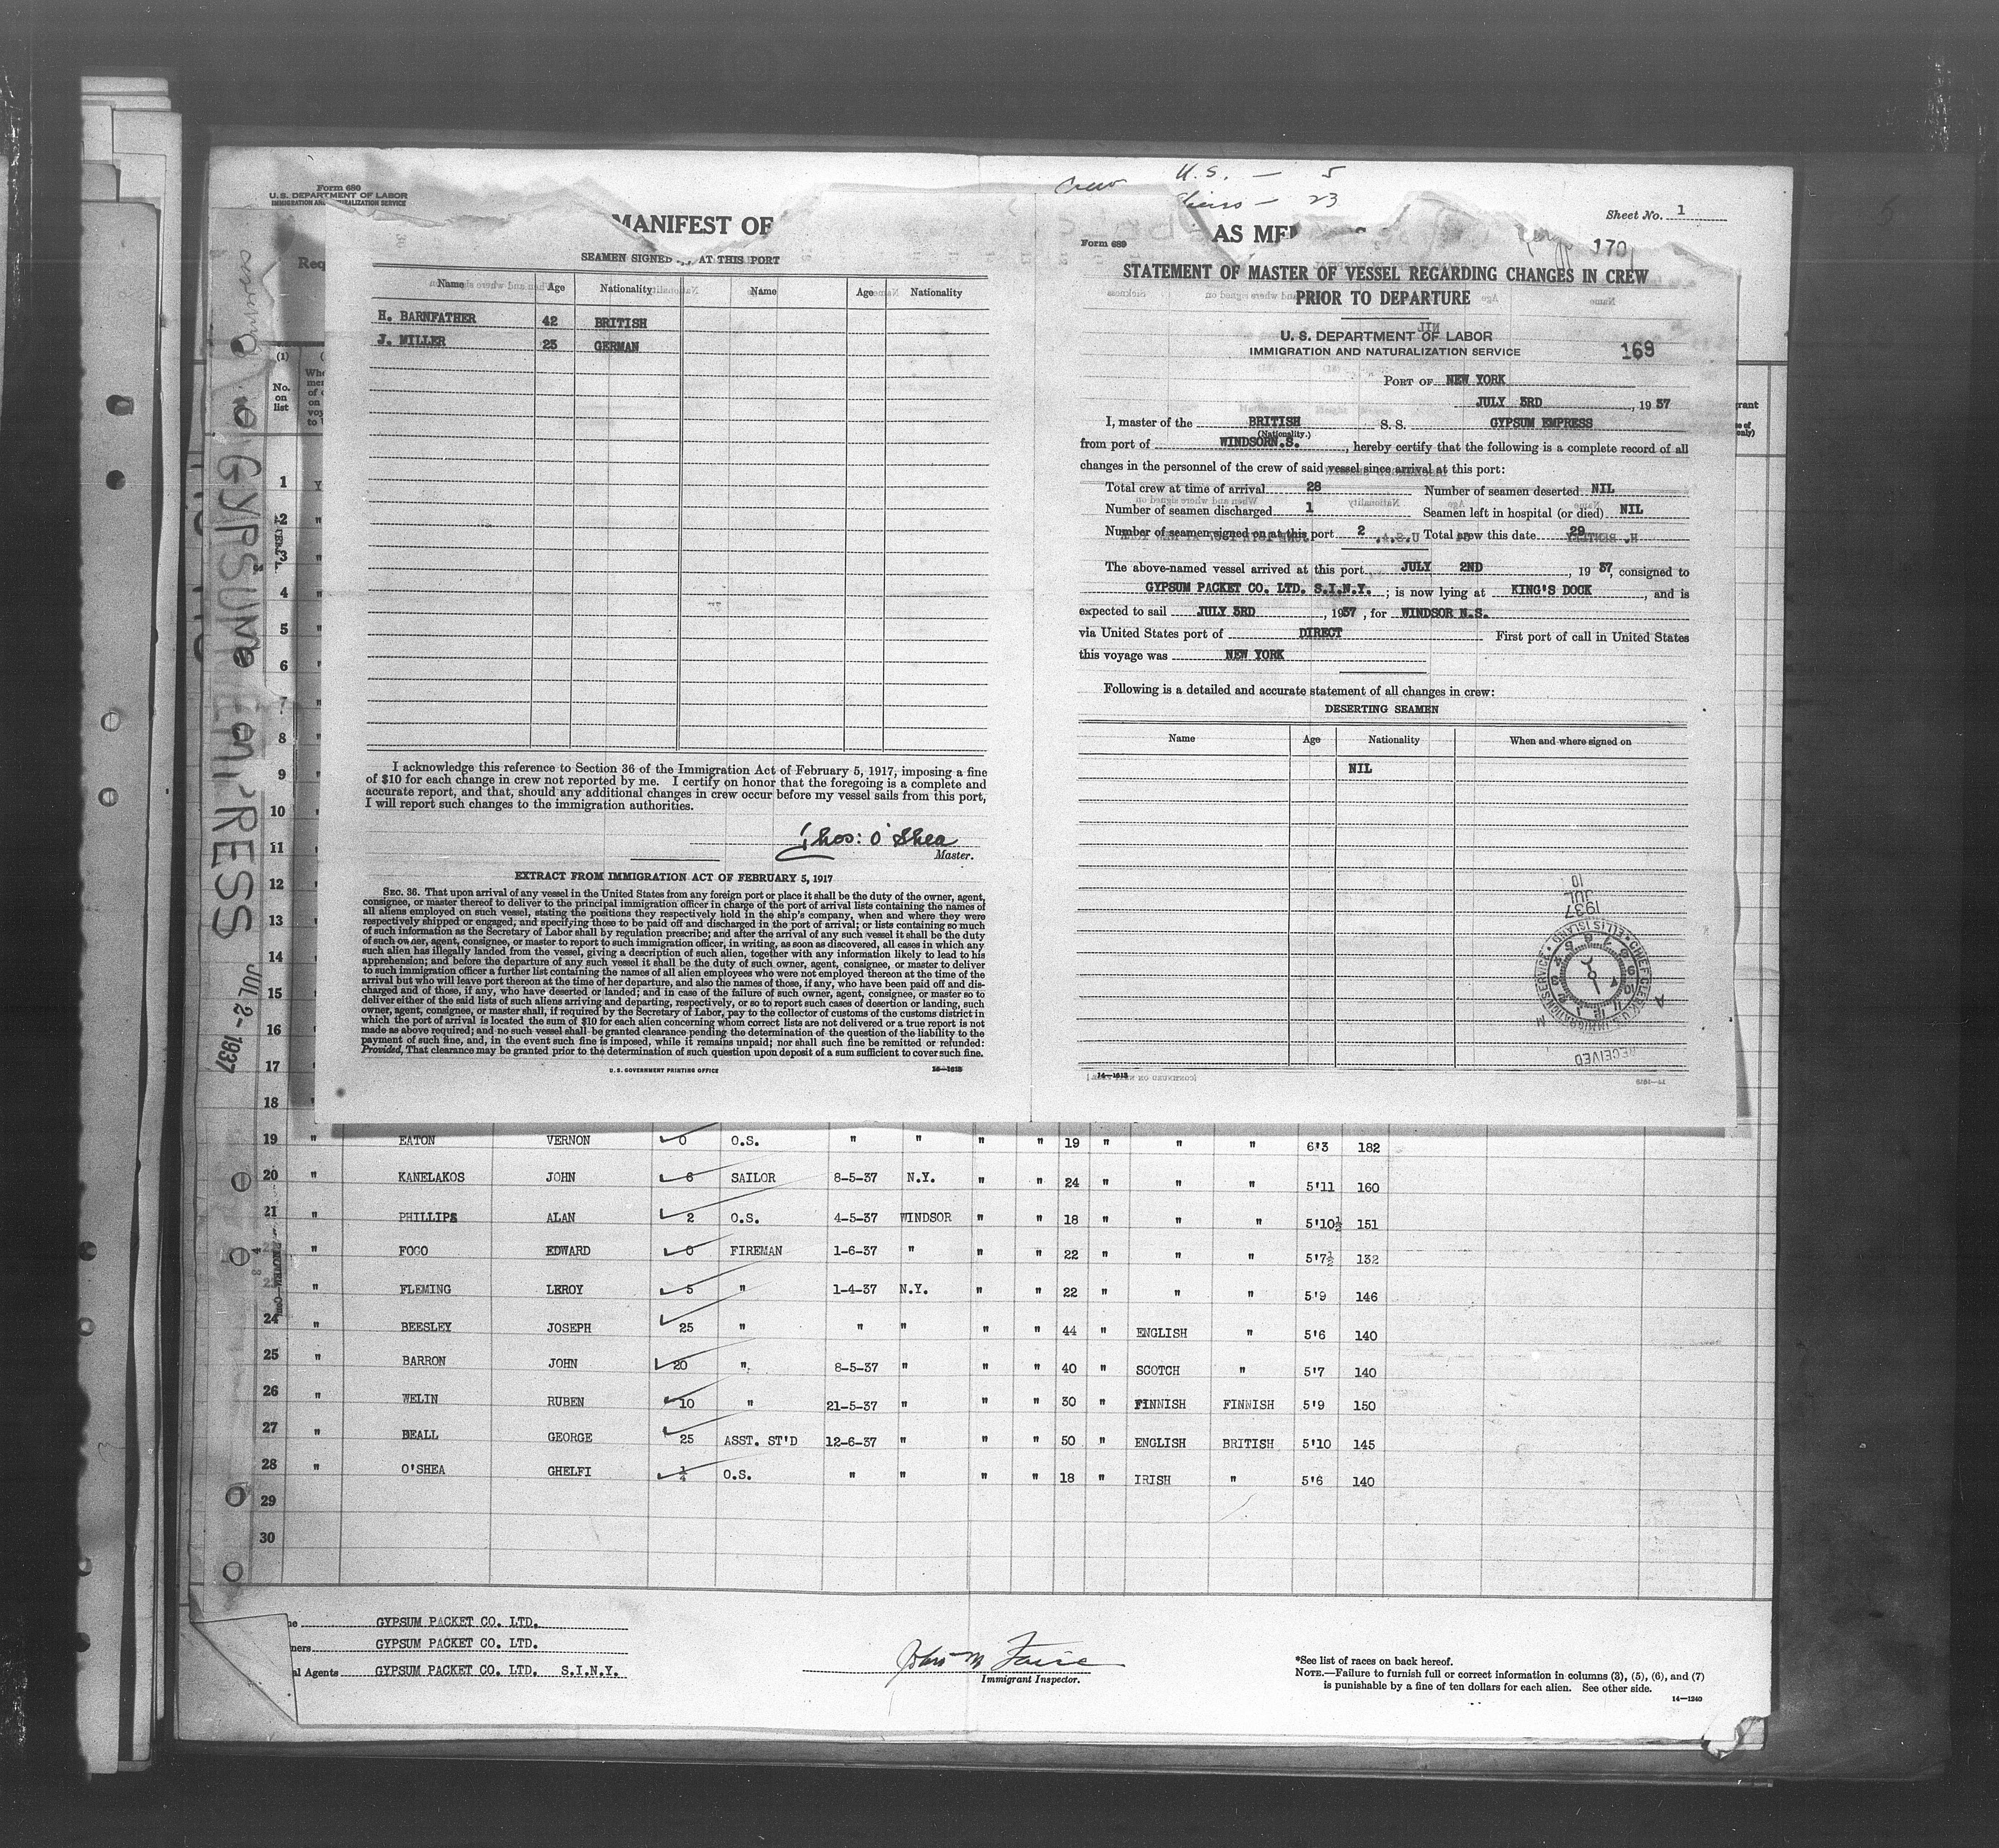 Form 689
U.S. DEPARTMENT OF LABOR
Crew U.S. — 5
23
Sheet No. 1
MANIFEST OF
AS
170
SEAMEN SIGNED AT THIS PORT
Name Age Nationality Name Age Nationality
H. BARNFATHER 42 BRITISH
J. MILLER 25 GERMAN
I acknowledge this reference to Section 36 of the Immigration Act of February 5, 1917, imposing a fine
of $10 for each change in crew not reported by me. I certify on honor that the foregoing is a complete and
accurate report, and that, should any additional changes in crew occur before my vessel sails from this port,
I will report such changes to the immigration authorities.
Thos: O'Shea
Master.
EXTRACT FROM IMMIGRATION ACT OF FEBRUARY 5, 1917
SEC. 36. That upon arrival of any vessel in the United States from any foreign port or place it shall be the duty of the owner, agent,
consignee, or master thereof to deliver to the principal immigration officer in charge of the port of arrival lists containing the names of
all aliens employed on such vessel, stating the positions they respectively hold in the ship's company, when and where they were
respectively shipped or engaged, and specifying those to be paid off and discharged in the port of arrival; or lists containing so much
of such information as the Secretary of Labor shall by regulation prescribe; and after the arrival of any such vessel it shall be the duty
of such owner, agent, consignee, or master to report to such immigration officer, in writing, as soon as discovered, all cases in which any
such alien has illegally landed from the vessel, giving a description of such alien, together with any information likely to lead to his
apprehension; and before the departure of any such vessel it shall be the duty of such owner, agent, consignee, or master to deliver
to such immigration officer a further list containing the names of all alien employees who were not employed thereon at the time of the
arrival but who will leave port thereon at the time of her departure, and also the names of those, if any, who have been paid off and dis-
charged and of those, if any, who have deserted or landed; and in case of the failure of such owner, agent, consignee, or master so to
deliver either of the said lists of such aliens arriving and departing, respectively, or so to report such cases of desertion or landing, such
owner, agent, consignee, or master shall, if required by the Secretary of Labor, pay to the collector of customs of the customs district in
which the port of arrival is located the sum of $10 for each alien concerning whom correct lists are not delivered or a true report is not
made as above required; and no such vessel shall be granted clearance pending the determination of the question of the liability to the
payment of such fine, and, in the event such fine is imposed, while it remains unpaid; nor shall such fine be remitted or refunded:
Provided, That clearance may be granted prior to the determination of such question upon deposit of a sum sufficient to cover such fine.
U.S. GOVERNMENT PRINTING OFFICE
Form 689
STATEMENT OF MASTER OF VESSEL REGARDING CHANGES IN CREW
PRIOR TO DEPARTURE
U. S. DEPARTMENT OF LABOR
IMMIGRATION AND NATURALIZATION SERVICE
169
PORT OF NEW YORK
JULY 3RD, 1937
I, master of the BRITISH S. S. GYPSUM EMPRESS
(Nationality.)
from port of WINDSOR N.S., hereby certify that the following is a complete record of all
changes in the personnel of the crew of said vessel since arrival at this port:
Total crew at time of arrival 28 Number of seamen deserted NIL
Number of seamen discharged 1 Seamen left in hospital (or died) NIL
Number of seamen signed on at this port 2 Total crew this date 29
The above-named vessel arrived at this port JULY 2ND, 1937, consigned to
GYPSUM PACKET CO. LTD. S.I.N.Y.; is now lying at KING'S DOCK, and is
expected to sail JULY 3RD, 1937, for WINDSOR N.S.
via United States port of DIRECT First port of call in United States
this voyage was NEW YORK
Following is a detailed and accurate statement of all changes in crew:
DESERTING SEAMEN
Name Age Nationality When and where signed on
NIL
1937 JUL 10
RECEIVED
14—1613
GYPSUM EMPRESS JUL 2-1937
(1)
No. on list
1
2
3
4
5
6
7
8
9
10
11
12
13
14
15
16
17
18
19 " EATON VERNON 0 O.S. " " " " 19 " " " 6'3 182
20 " KANELAKOS JOHN 6 SAILOR 8-5-37 N.Y. " " 24 " " " 5'11 160
21 " PHILLIPS ALAN 2 O.S. 4-5-37 WINDSOR " " 18 " " " 5'10½ 151
22 " FOGO EDWARD 0 FIREMAN 1-6-37 " " " 22 " " " 5'7½ 132
23 " FLEMING LEROY 5 " 1-4-37 N.Y. " " 22 " " " 5'9 146
24 " BEESLEY JOSEPH 25 " " " " " 44 " ENGLISH " 5'6 140
25 " BARRON JOHN 20 " 8-5-37 " " " 40 " SCOTCH " 5'7 140
26 " WELIN RUBEN 10 " 21-5-37 " " " 30 " FINNISH FINNISH 5'9 150
27 " BEALL GEORGE 25 ASST. ST'D 12-6-37 " " " 50 " ENGLISH BRITISH 5'10 145
28 " O'SHEA GHELFI ¼ O.S. " " " " 18 " IRISH " 5'6 140
29
30
GYPSUM PACKET CO. LTD.
GYPSUM PACKET CO. LTD.
Agents GYPSUM PACKET CO. LTD. S.I.N.Y.
Immigrant Inspector.
*See list of races on back hereof.
NOTE.—Failure to furnish full or correct information in columns (3), (5), (6), and (7)
is punishable by a fine of ten dollars for each alien. See other side.
14—1240